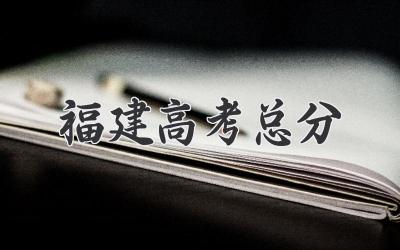 福建高考总分